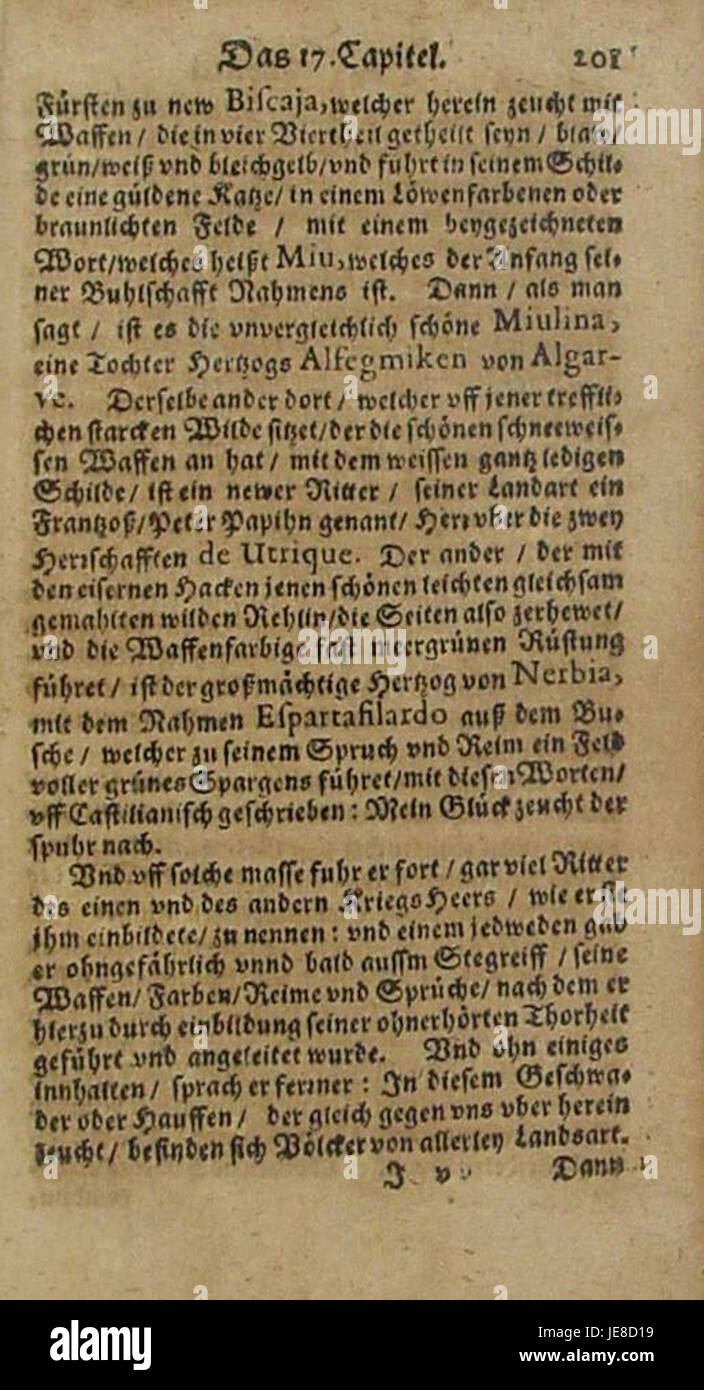 Das 17. Capitel. 201
Fürsten zu new Biscaja, welcher herein zeucht mit
Waffen / die in vier Viertheil getheilt seyn / blaw /
grün / weiß vnd bleichgelb / vnd führt in seinem Schil-
de eine güldene Katze / in einem Löwenfarbenen oder
braunlichten Felde / mit einem beygezeichneten
Wort / welches heißt Miu, welches der Anfang sei-
ner Buhlschafft Nahmens ist. Dann / als man
sagt / ist es die vnvergleichlich schöne Miulina,
eine Tochter Hertzogs Alfegmiken von Algar-
ve. Derselbe ander dort / welcher vff jener treffli-
chen starcken Wilde sitzet / der die schönen schneeweis-
sen Waffen an hat / mit dem weissen gantz ledigen
Schilde / ist ein newer Ritter / seiner Landart ein
Frantzoß / Peter Papihn genant / Herr vber die zwey
Herrschafften de Utrique. Der ander / der mit
den eisernen Hacken jenen schönen leichten gleichsam
gemahlten wilden Rehlin / die Seiten also zerhewet /
vnd die Waffenfarbige fast meergrünen Rüstung
führet / ist der großmächtige Hertzog von Nerbia,
mit dem Nahmen Espartafilardo auß dem Bu-
sche / welcher zu seinem Spruch vnd Reim ein Feld
voller grünes Spargens führet / mit diesen Worten /
vff Castilianisch geschrieben: Mein Glück zeucht der
spuhr nach.
Vnd vff solche masse fuhr er fort / gar viel Ritter
des einen vnd des andern Kriegs Heers / wie er sie
jhm einbildete / zu nennen: vnd einem jedweden gab
er ohngefährlich vnnd bald aussm Stegreiff / seine
Waffen / Farben / Reime vnd Sprüche / nach dem er
hierzu durch einbildung seiner ohnerhörten Thorheit
geführt vnd angeleitet wurde. Vnd ohn einiges
innhalten / sprach er ferrner: In diesem Geschwa-
der oder Hauffen / der gleich gegen vns vber herein
zeucht / befinden sich Völcker von allerley Landsart.
I v Dann
alamy
Image ID: JE8D19
www.alamy.com